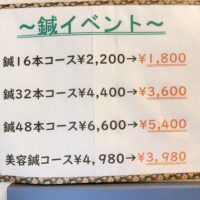 ～鍼イベント～
鍼16本コース¥2,200→¥1,800
鍼32本コース¥4,400→¥3,600
鍼48本コース¥6,600→¥5,400
美容鍼コース¥4,980→¥3,980